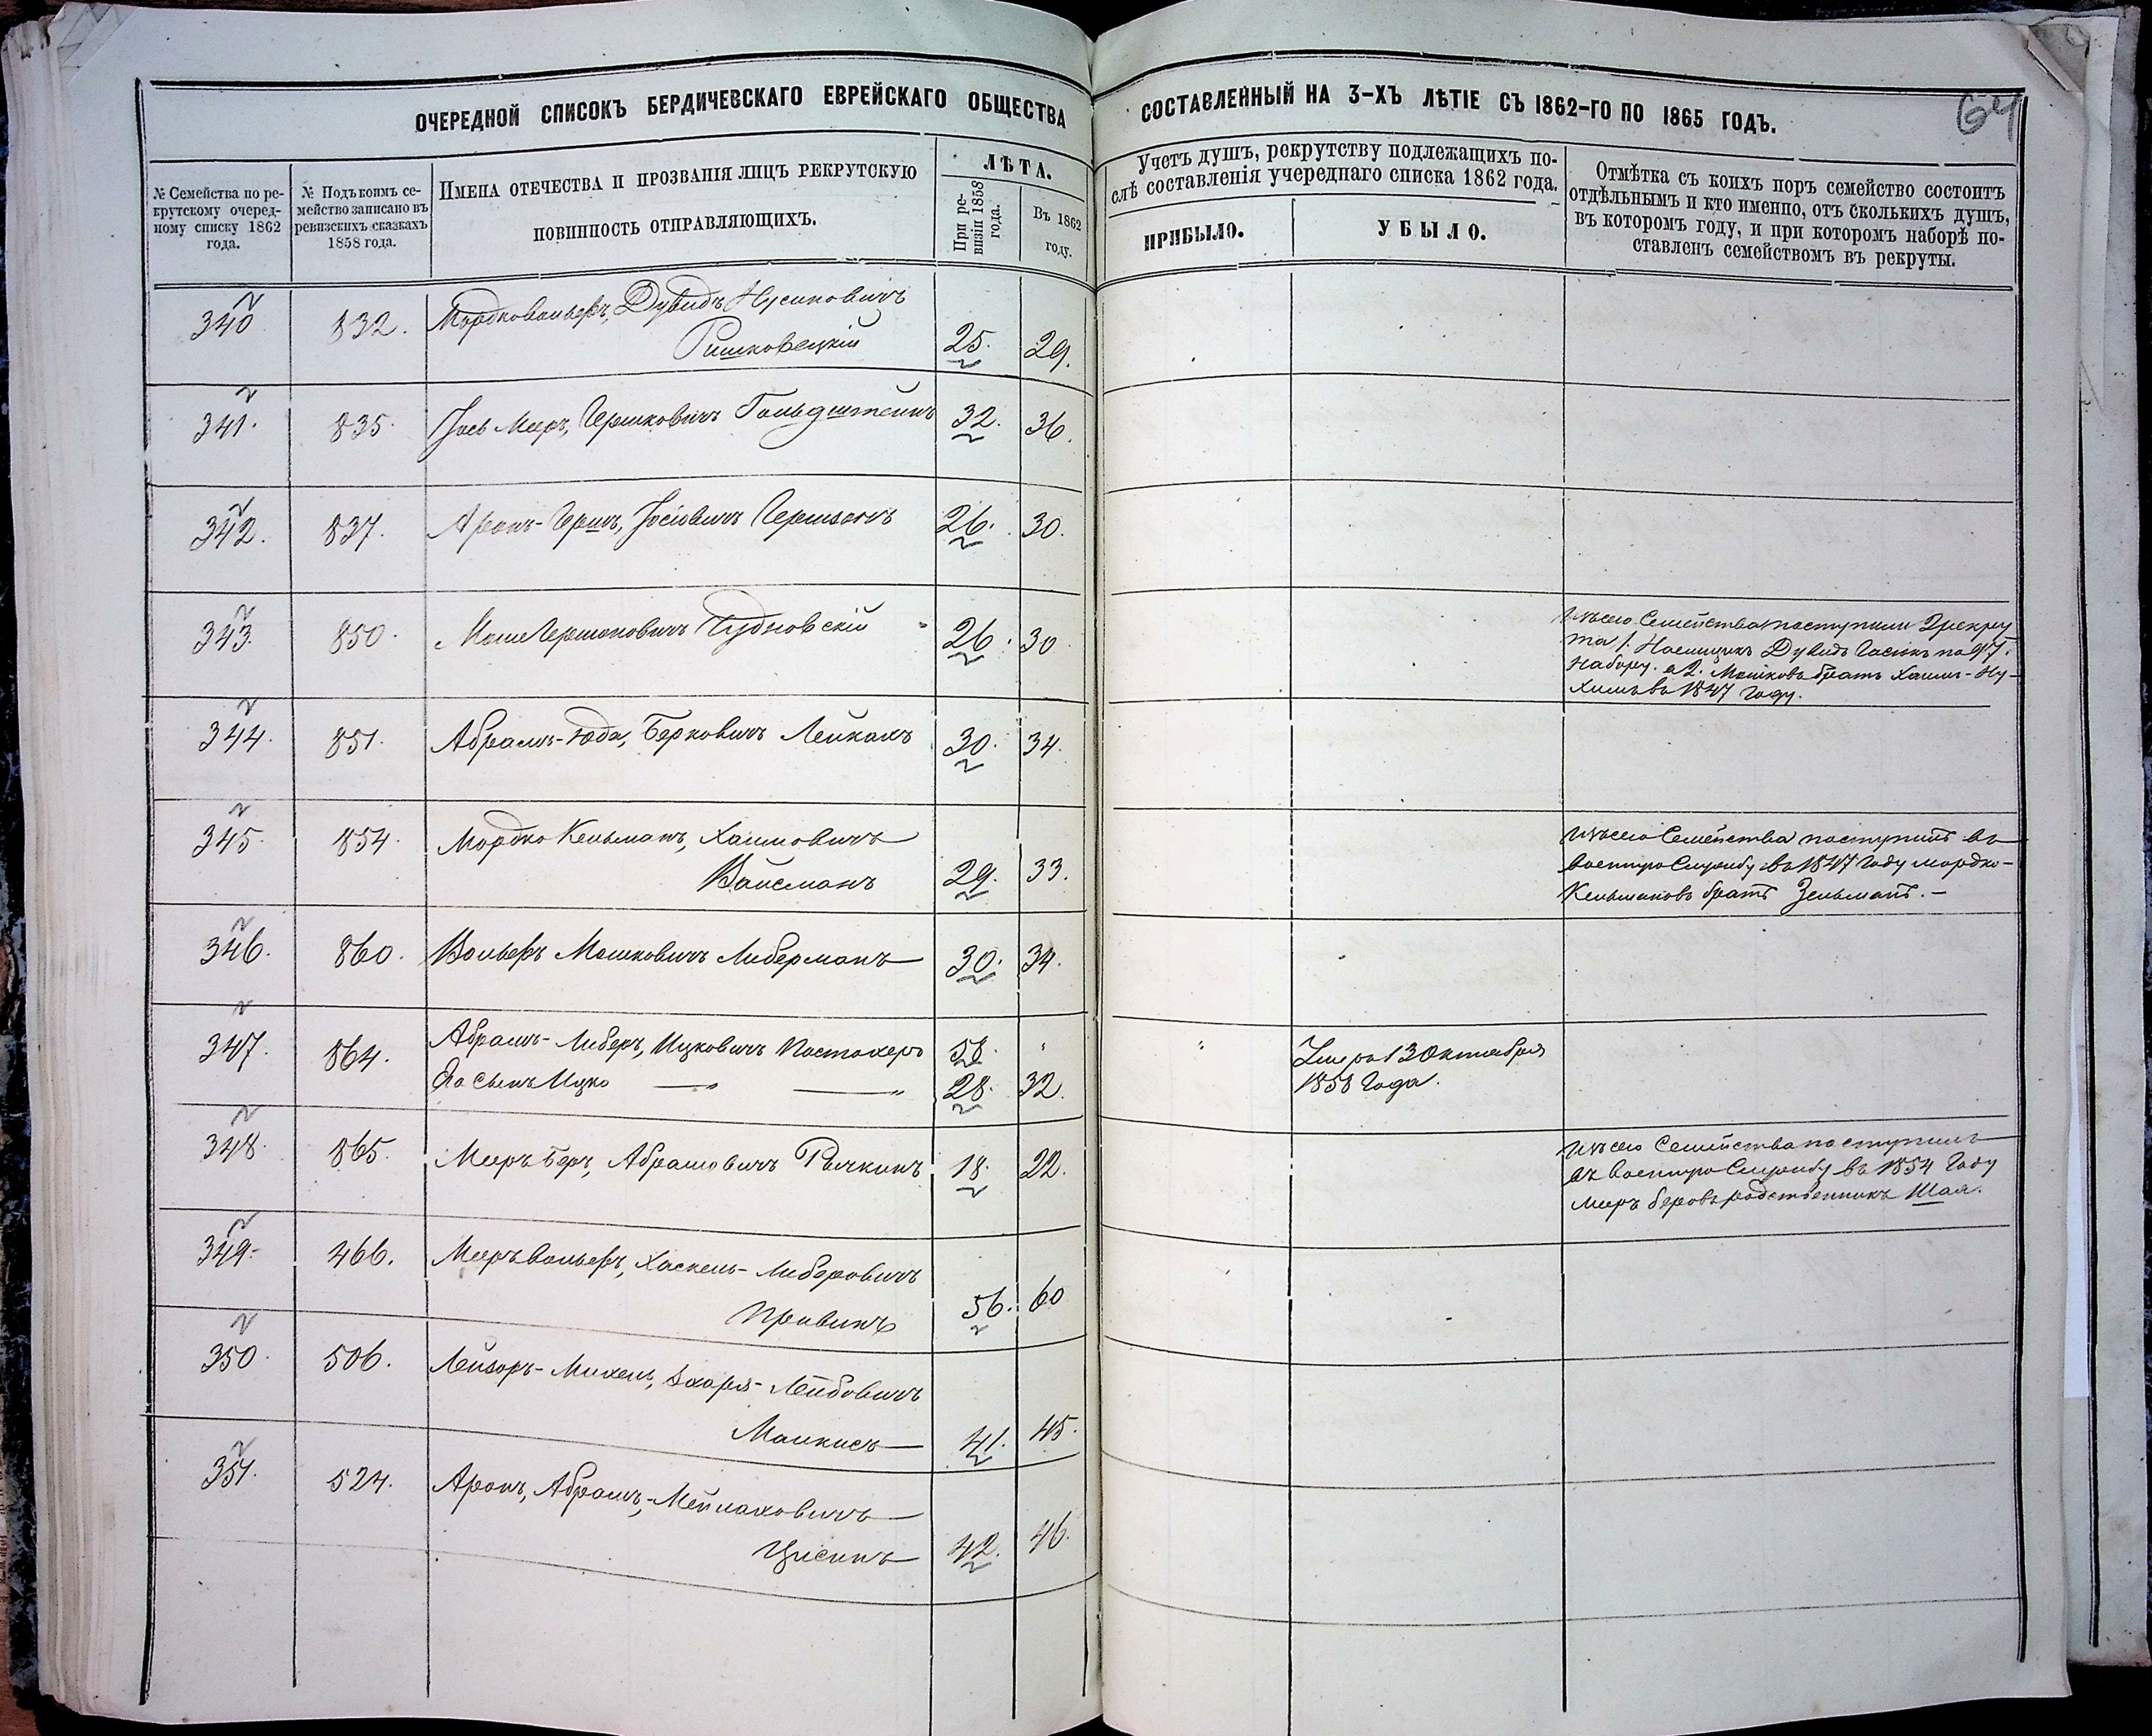 ОЧЕРЕДНОЙ СПИСОКЪ БЕРДИЧЕВСКАГО ЕВРЕЙСКАГО ОБЩЕСТВА СОСТАВЛЕННЫЙ НА 3-ХЪ ЛѢТІЕ СЪ 1862-ГО ПО 1865 ГОДЪ.
64
№ Семейства по рекрутскому очередному списку 1862 года.
№ Подъ коимъ семейство записано въ ревизскихъ сказкахъ 1858 года.
ИМЕНА ОТЕЧЕСТВА И ПРОЗВАНІЯ ЛИЦЪ РЕКРУТСКУЮ
ПОВИННОСТЬ ОТПРАВЛЯЮЩИХЪ.
ЛѢТА.
При ревизіи 1858 года.
Въ 1862 году.
Учетъ душъ, рекрутству подлежащихъ по-
слѣ составленія учереднаго списка 1862 года.
ПРИБЫЛО.
УБЫЛО.
Отмѣтка съ коихъ поръ семейство состоитъ
отдѣльнымъ и кто именно, отъ сколькихъ душъ,
въ котором году, и при котором наборѣ по-
ставленъ семейством въ рекруты.
340 832. Мордковольфъ, Дувидъ Нусиновичъ
Ришковецкій 25. 29.
341. 835. Іось Мееръ, Гершковичъ Гольдштейнъ 32. 36.
342. 837. Аронъ-Гершъ, Іосіовичъ Гершзонъ 26. 30.
343. 850. Моше Гершоновичъ Чудновскій 26. 30
Изъ сего Семейства поступили 2 рекру
та 1. Наемщикъ Дувидъ
набору. а 2. Мошковъ братъ Хаимъ-Ну-
химъ въ 1847 Году.
344. 851. Абрамъ-Юда, Берковичъ 30. 34.
345. 854. Мордко Кельманъ, Хаимовичъ
Вайсманъ 29. 33.
Изъ сего Семейства поступилъ въ
военную Службу въ 1847 Году Мордко-
Кельмановъ братъ Зельманъ.-
346. 860. Вольфъ Мошковичъ Либерманъ 30. 34.
347. 864. Абрамъ-Либеръ, Ицковичъ 58. "
" Умеръ 13 Октября
1858 Года.
Его Сынъ Ицко — " — " 28. 32.
348. 865. Мееръ Беръ, Абрамовичъ 18. 22.
Изъ сего Семейства поступилъ
въ военную Службу въ 1854 Году
Мееръ Беровъ родственникъ Шая.
349. 466. Мееръ Вольфъ, Хаскель-Либеровичъ
56. 60
350. 506. Лейзоръ-Михель, Лейбовичъ
41. 45.
351. 524. Аронъ, Абрамъ,
42. 46.